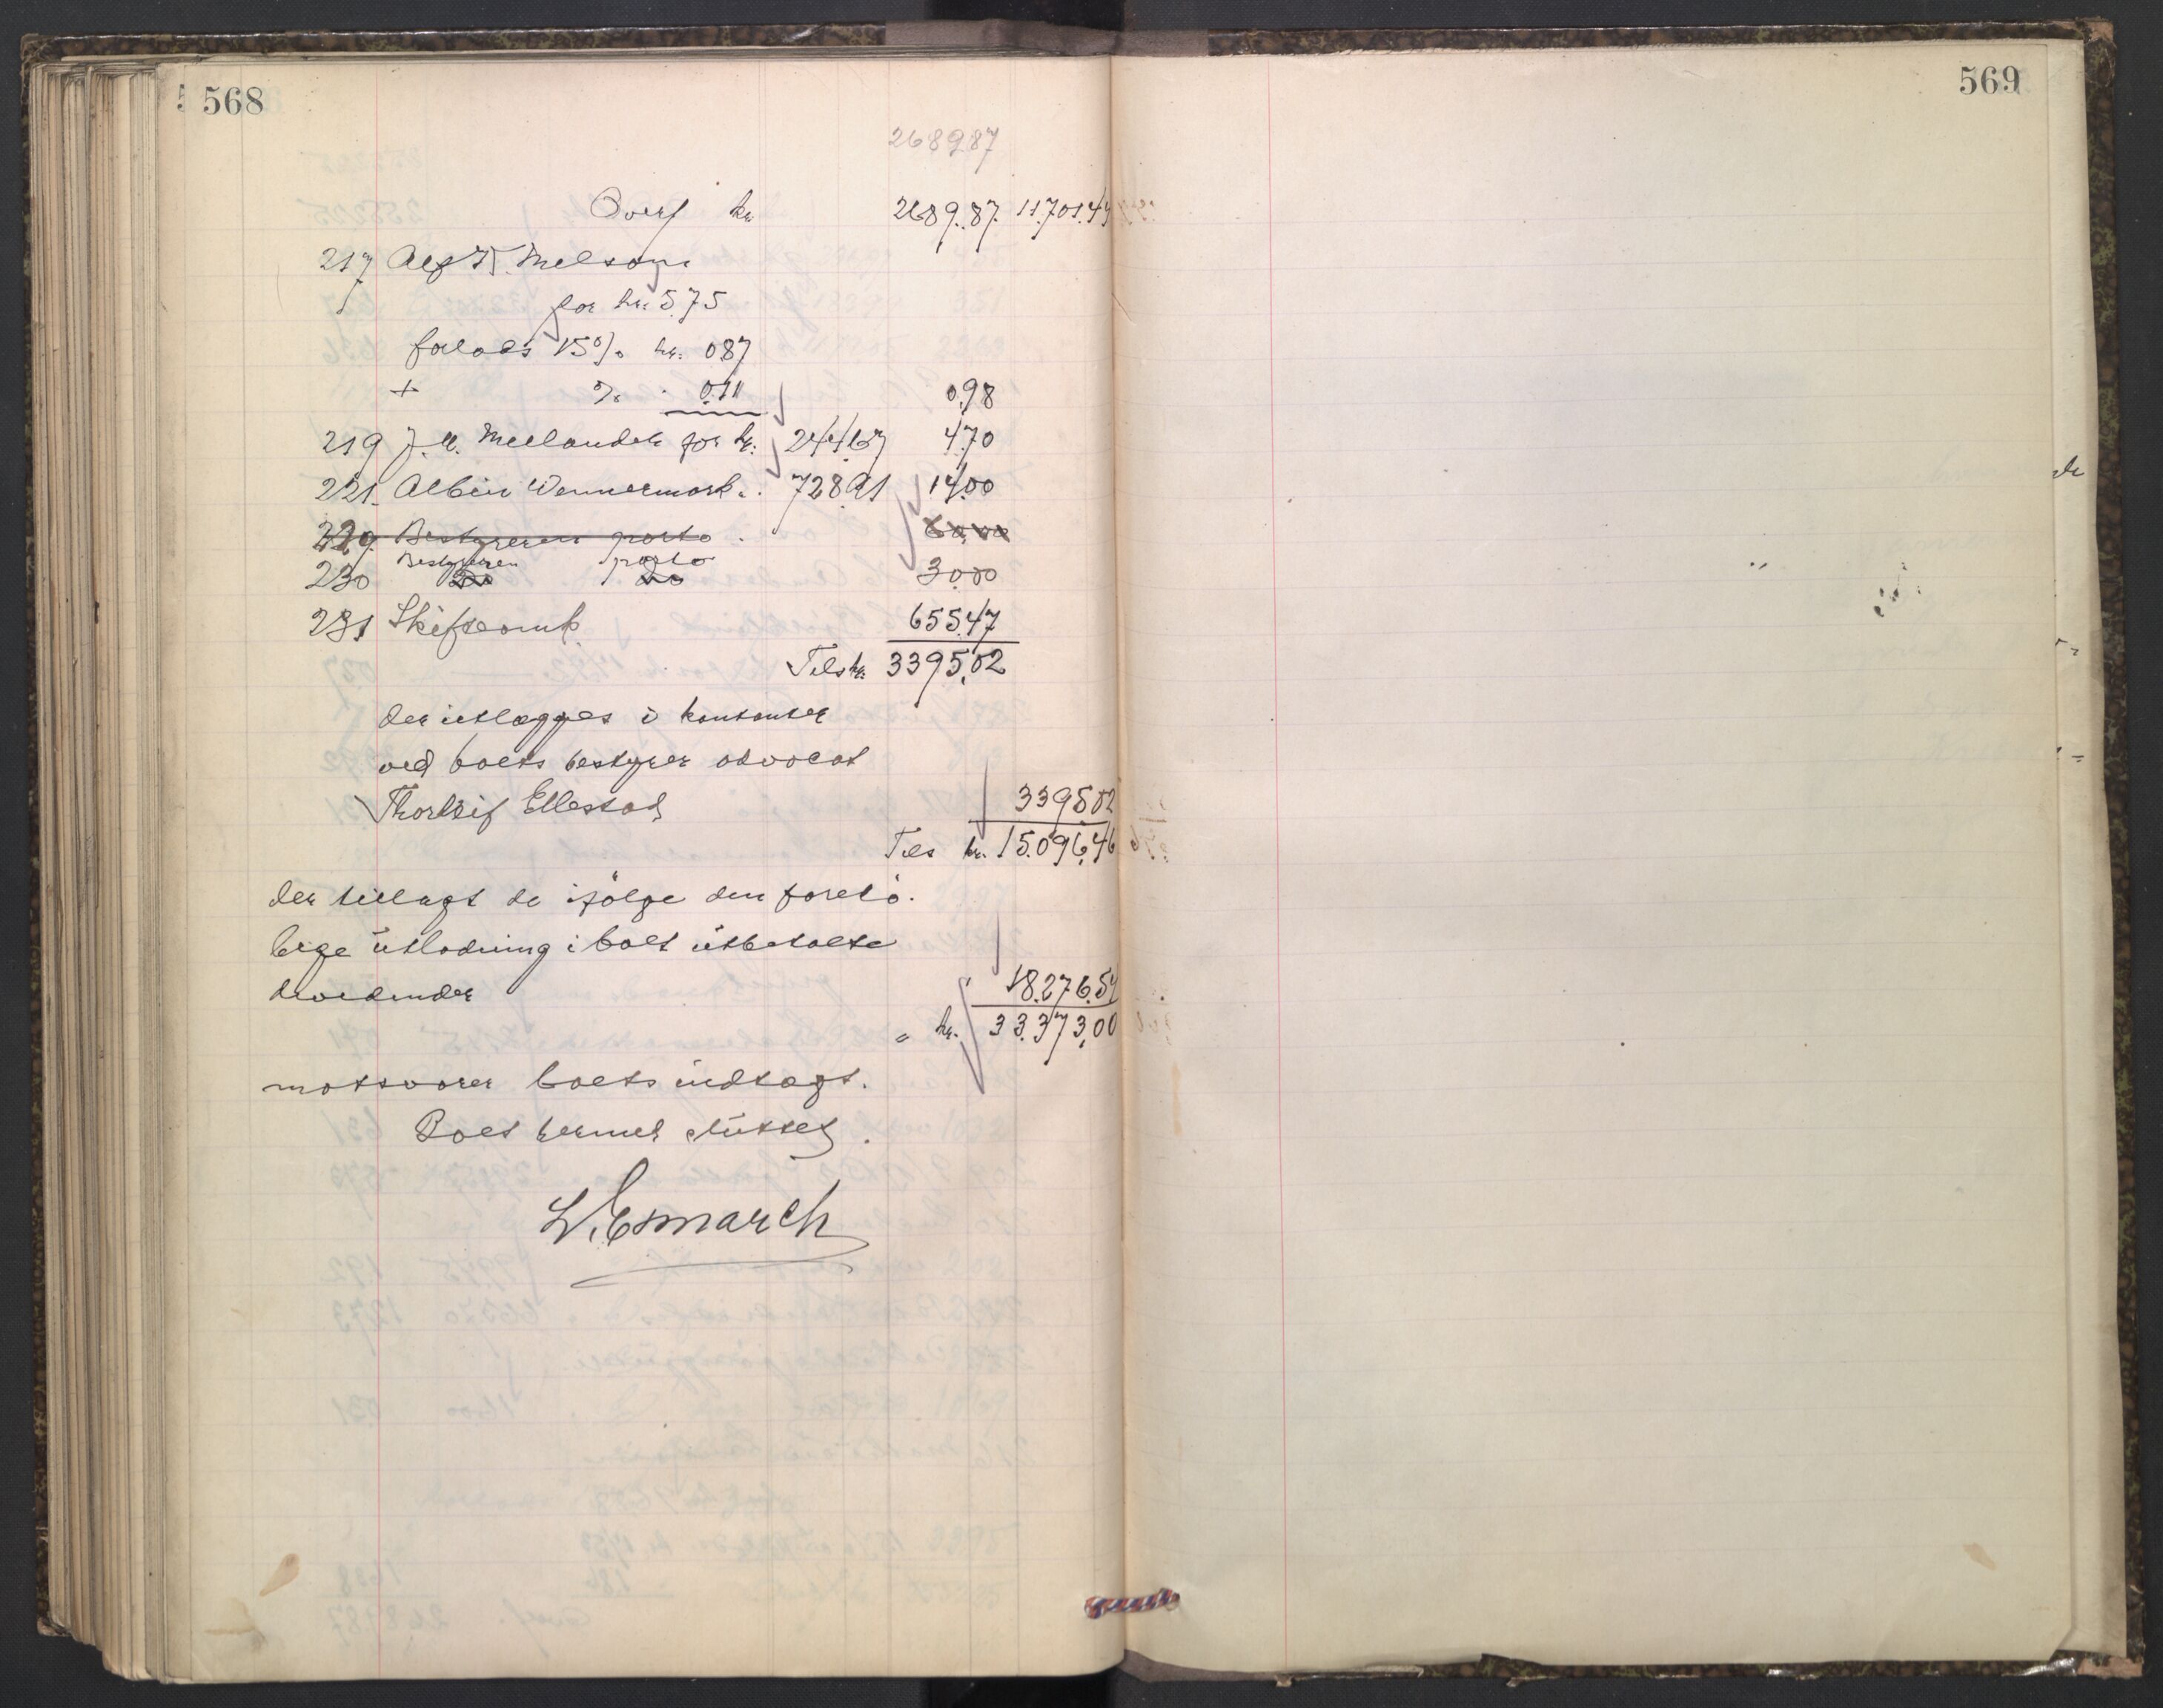 568
2689.87
Overf kr 2689.87. 11.701.44
217 Alf N. Melsom
for kr. 5.75
forlods 15% kr. 0.87
+ % . 0.11 0.98
219 J. A. Mellander for kr. 244.67 4.70
221. Albin Wennermark . 728.91 14.00
229. Bestyreren porto . 60,00
230 Bestyreren porto 30.00
231 Skifteomk. 655.47
Tils kr. 3395,02
der utlægges i kontanter
ved boets bestyrer advocat
Thorleif Ellestad 3395.02
Tils kr. 15.096,46
der tillagt de ifølge den forelø-
bige utlodning i boet utbetalte
dividender 18.276.54
= kr. 33.373,00
motsvarer boets indtægt.
Boet dermed sluttet.
L. Esmarch
569